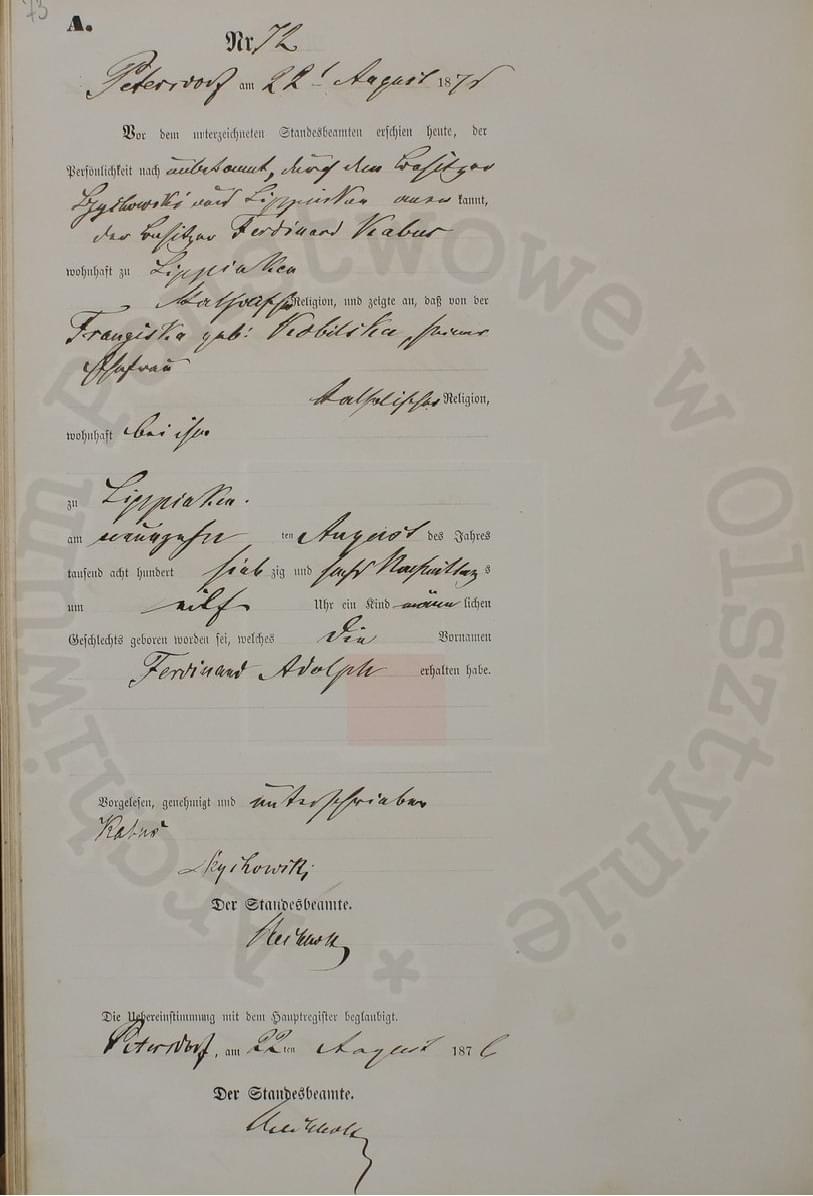 73
A.
Nr. 72
Petersdorf am 22t August 187
Vor dem unterzeichneten Standesbeamten erschien heute, der
Persönlichkeit nach unbekannt, durch den Besitzer
aus Lippinken aner kannt,
der Besitzer Ferdinand Kabus
wohnhaft zu Lippinken
katholischer Religion, und zeigte an, daß von der
Franziska geb. Kobilska, seiner
Ehefrau
katholischer Religion,
wohnhaft bei ihm
zu Lippinken.
am neunzehn ten August des Jahres
tausend acht hundert sieb zig und sechs Nachmittag s
um eilf Uhr ein Kind männ lichen
Geschlechts geboren worden sei, welches die Vornamen
Ferdinand Adolph erhalten habe.
Vorgelesen, genehmigt und unterschrieben
Kabus
Der Standesbeamte.
Die Uebereinstimmung mit dem Hauptregister beglaubigt.
Petersdorf, am 22ten August 1876
Der Standesbeamte.
Archiwum Państwowe w Olsztynie *